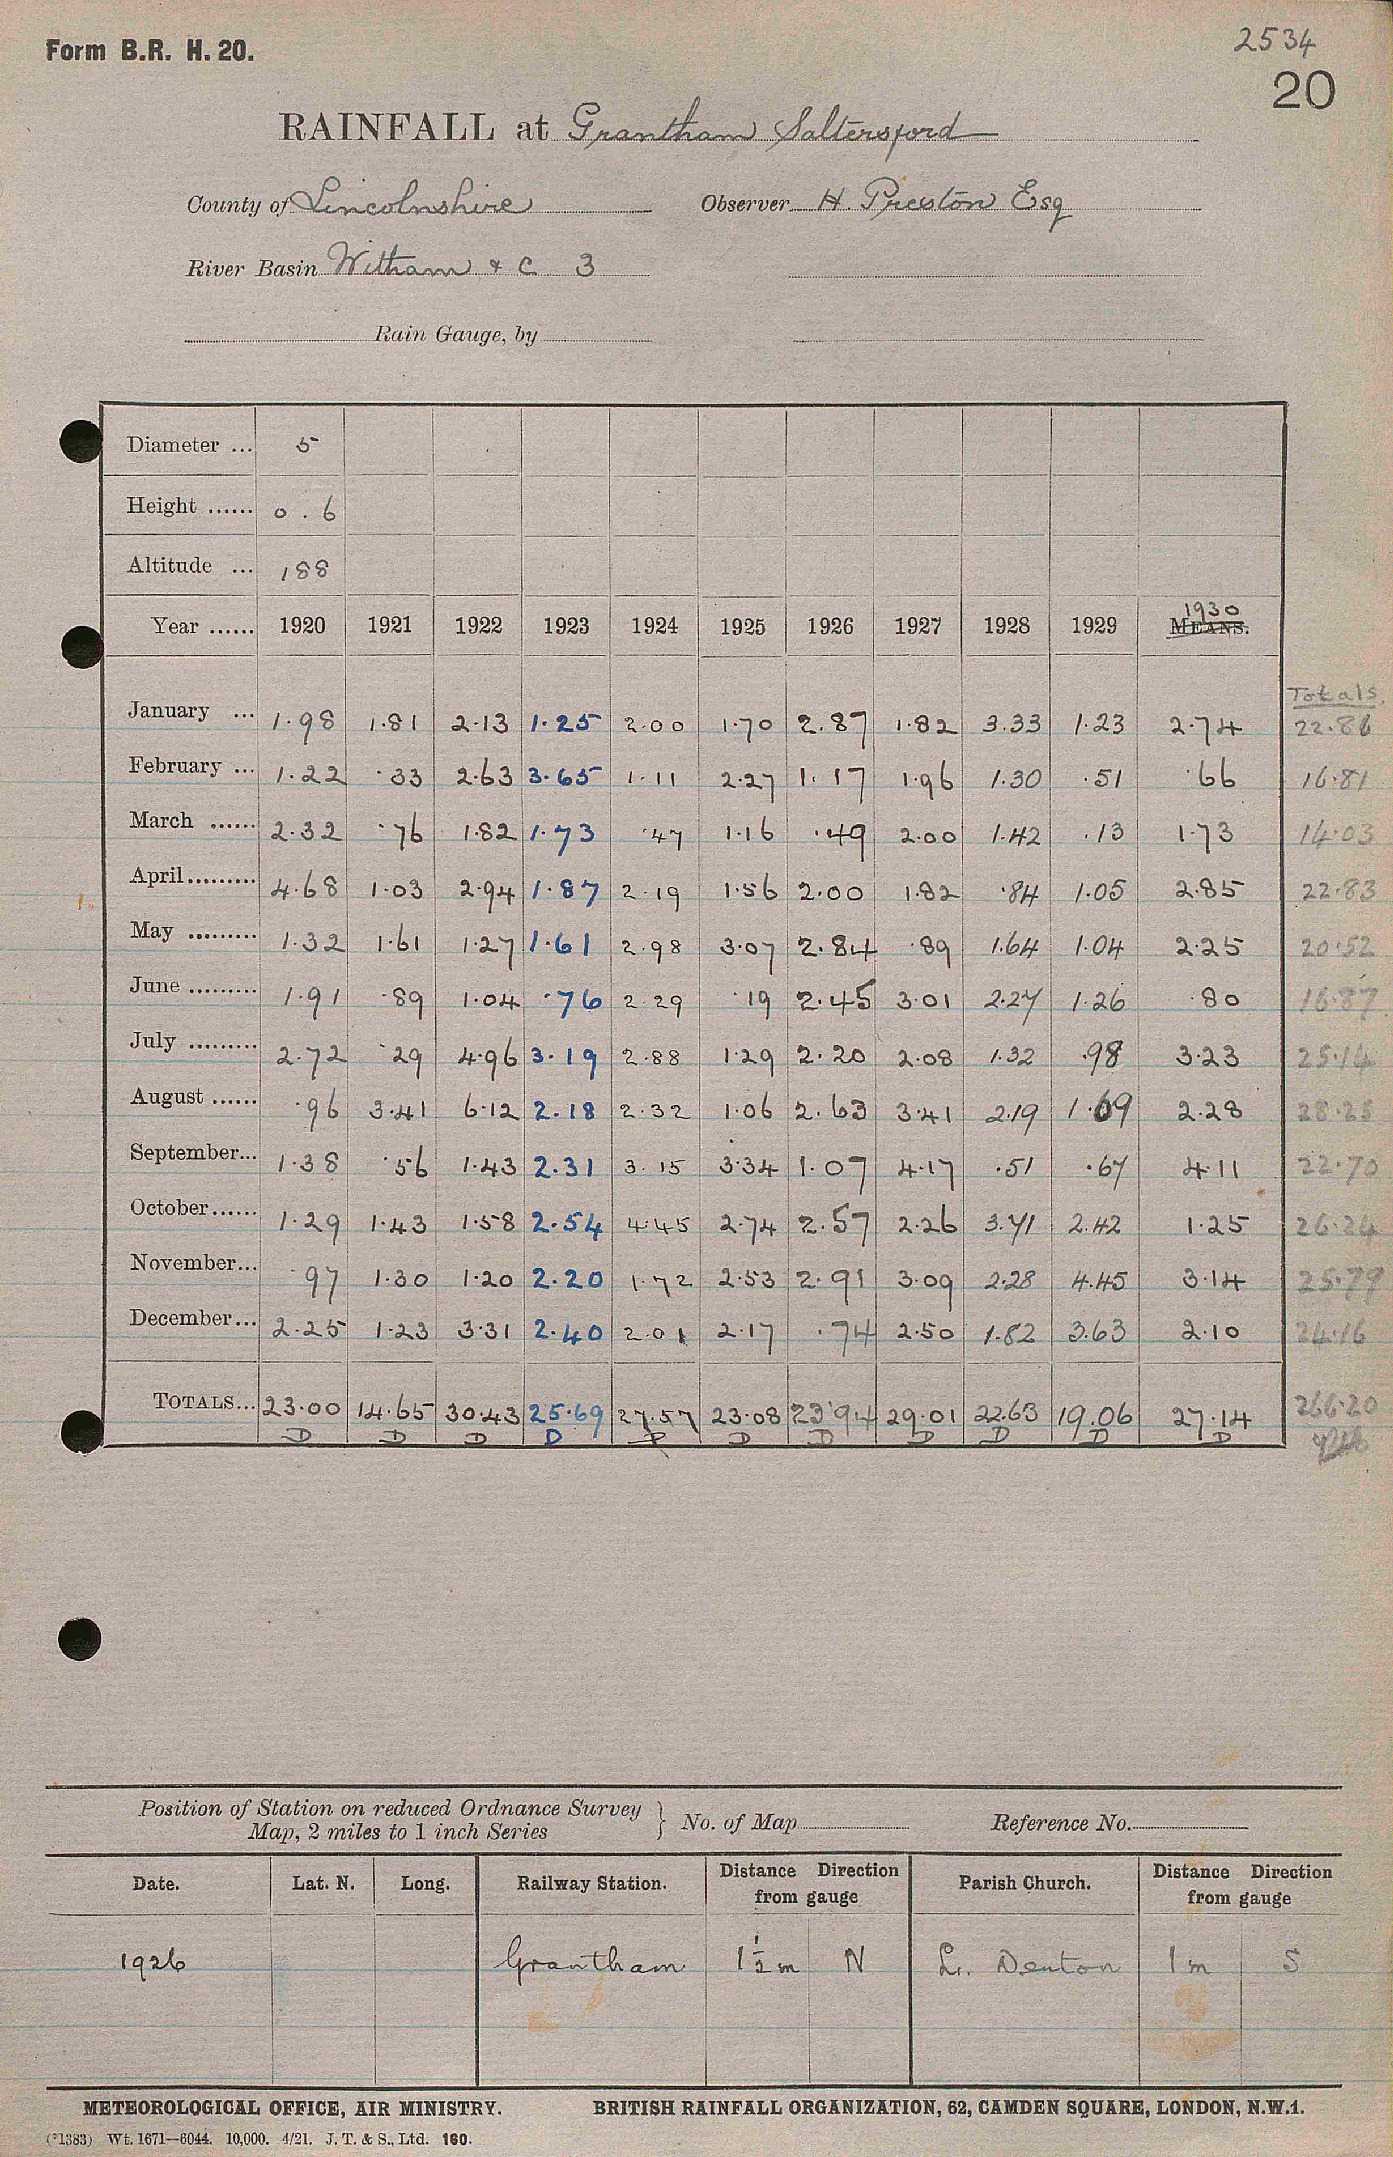 Form B.R. H. 20.
2534
20
RAINFALL at Grantham Saltersford
County of Lincolnshire Observer H. Preston Esq
River Basin Witham & C 3
Rain Gauge, by
Diameter ... 5
Height ...... 0 . 6
Altitude ... 188
1930
Year ...... 1920 1921 1922 1923 1924 1925 1926 1927 1928 1929 MEANS.
Totals
January ... 1.98 1.81 2.13 1.25 2.00 1.70 2.87 1.82 3.33 1.23 2.74 22.86
February ... 1.22 .33 2.63 3.65 1.11 2.27 1.17 1.96 1.30 .51 .66 16.81
March ...... 2.32 .76 1.82 1.73 .47 1.16 .49 2.00 1.42 .13 1.73 14.03
April......... 4.68 1.03 2.94 1.87 2.19 1.56 2.00 1.82 .84 1.05 2.85 22.83
May ......... 1.32 1.61 1.27 1.61 2.98 3.07 2.84 .89 1.64 1.04 2.25 20.52
June ......... 1.91 .89 1.04 .76 2.29 .19 2.45 3.01 2.27 1.26 .80 16.87
July ......... 2.72 .29 4.96 3.19 2.88 1.29 2.20 2.08 1.32 .98 3.23 25.14
August ...... .96 3.41 6.12 2.18 2.32 1.06 2.63 3.41 2.19 1.69 2.28 28.25
September... 1.38 .56 1.43 2.31 3.15 3.34 1.07 4.17 .51 .67 4.11 22.70
October...... 1.29 1.43 1.58 2.54 4.45 2.74 2.57 2.26 3.71 2.42 1.25 26.24
November... .97 1.30 1.20 2.20 1.72 2.53 2.91 3.09 2.28 4.45 3.14 25.79
December... 2.25 1.23 3.31 2.40 2.01 2.17 .74 2.50 1.82 3.63 2.10 24.16
TOTALS... 23.00 14.65 30.43 25.69 27.57 23.08 23.94 29.01 22.63 19.06 27.14 266.20
D D D D D D D D D D D
Position of Station on reduced Ordnance Survey
Map, 2 miles to 1 inch Series } No. of Map Reference No.
Date. Lat. N. Long. Railway Station. Distance Direction from gauge Parish Church. Distance Direction from gauge
1926 Grantham 1 1/2 m N Lr. Denton 1 m S
METEOROLOGICAL OFFICE, AIR MINISTRY. BRITISH RAINFALL ORGANIZATION, 62, CAMDEN SQUARE, LONDON, N.W.1.
(*1383) Wt. 1671—6044. 10,000. 4/21. J. T. & S., Ltd. 160.